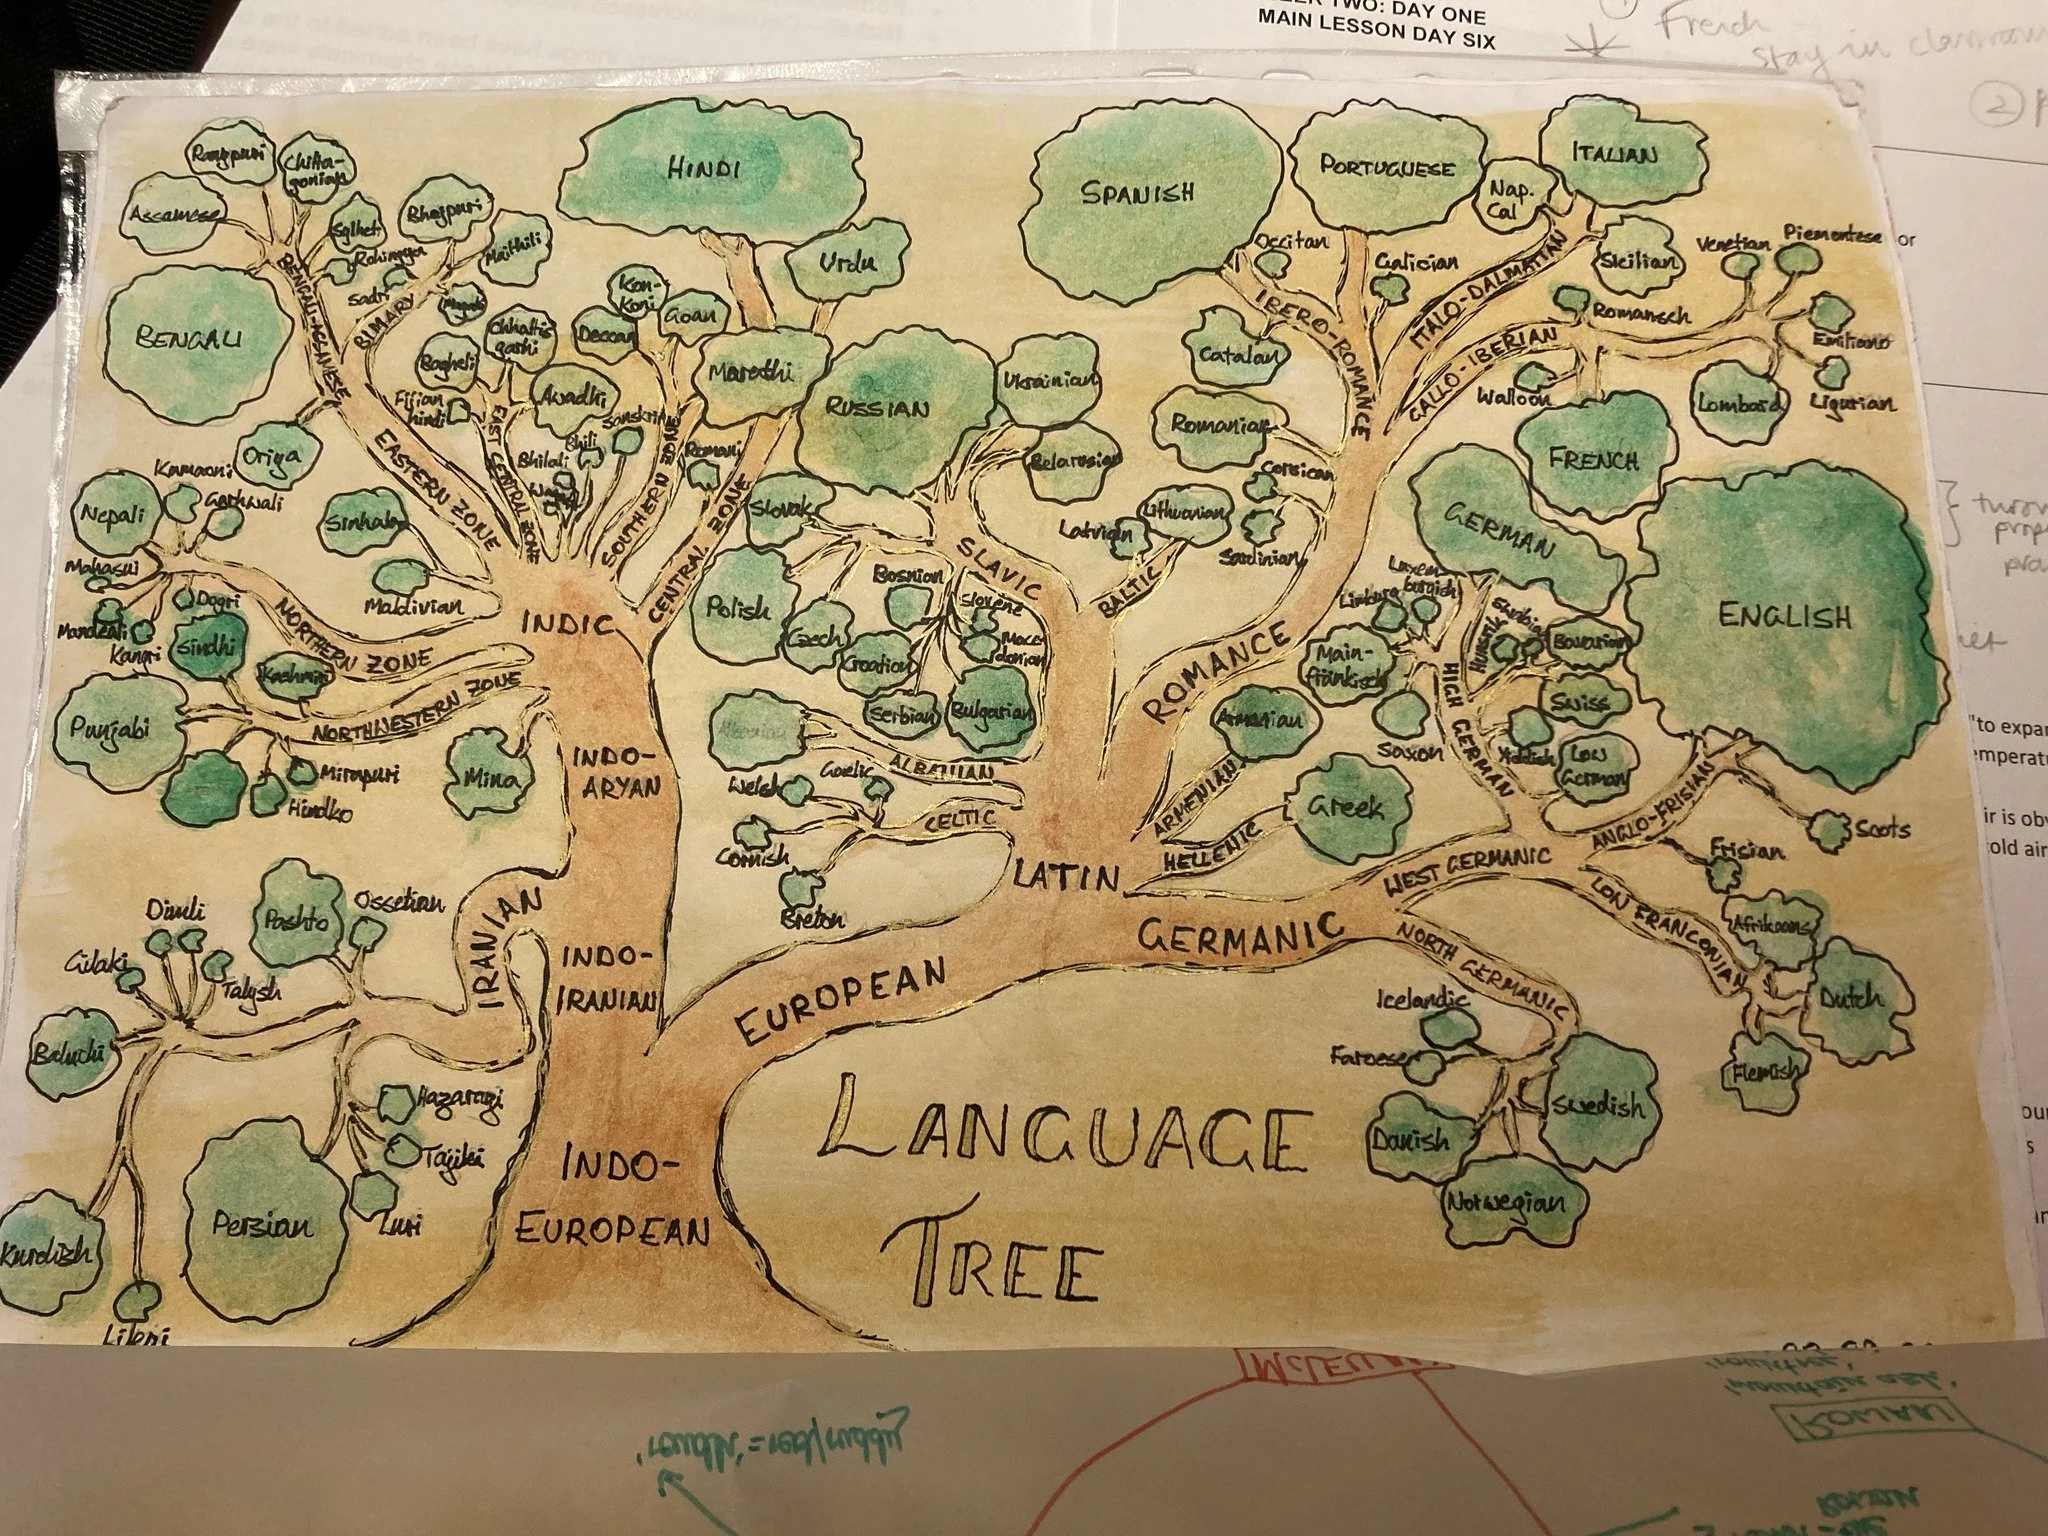 TWO: DAY ONE
MAIN LESSON DAY SIX
French
Stay in classroom
2
or
Rangpuri
Chitta-
gonian
Assamese
Sylheti
Rohingya
Bhojpuri
Maithili
Sadri
Magahi
BENGALI
BENGALI-ASSAMESE
BIHARY
Oriya
EASTERN ZONE
HINDI
Urdu
Kon-
Koni
Goan
Deccan
Chhattis
garhi
Bagheli
Fijian
hindi
Awadhi
EAST CENTRAL ZONE
Bhili
Bhilali
Sanskrit
Marathi
Romani
SOUTHERN ZONE
CENTRAL ZONE
Kumaoni
Garhwali
Nepali
Mahasui
Mandeali
Kangri
Dogri
Sinhala
Maldivian
NORTHERN ZONE
INDIC
Sindhi
Kashmiri
Punjabi
NORTHWESTERN ZONE
Mirapuri
Hindko
Mina
INDO-
ARYAN
RUSSIAN
Ukrainian
Belarusian
Slovak
Polish
Czech
Croatian
Bosnian
Slovene
Mace-
donian
Serbian
Bulgarian
SLAVIC
Latvian
Lithuanian
BALTIC
SPANISH
PORTUGUESE
ITALIAN
Nap.
Cal
Occitan
Galician
Sicilian
Venetian
Piemontese
IBERO-ROMANCE
ITALO-DALMATIAN
Romansch
Emiliano
Catalan
GALLO-IBERIAN
Walloon
Lombard
Ligurian
Romanian
FRENCH
Corsican
Sardinian
ROMANCE
GERMAN
ENGLISH
Luxem
burgish
Limburg
Main-
fränkisch
Hunsrik
Bavarian
Swiss
Saxon
Yiddish
Low
German
HIGH GERMAN
Albanian
ALBANIAN
Welsh
Gaelic
Cornish
Breton
CELTIC
Armenian
ARMENIAN
Greek
HELLENIC
LATIN
ANGLO-FRISIAN
Scots
Frisian
WEST GERMANIC
LOW FRANCONIAN
Afrikaans
Dutch
Flemish
GERMANIC
NORTH GERMANIC
Icelandic
Faroese
Danish
Swedish
Norwegian
Pashto
Ossetian
Dimli
Gilaki
Talysh
Baluchi
IRANIAN
INDO-
IRANIAN
EUROPEAN
Hazaragi
Tajiki
Luri
Persian
Kurdish
INDO-
EUROPEAN
LANGUAGE
TREE
MCLELLAN
'roudh' = red/ruddy
'mountain ash'
ROWAN